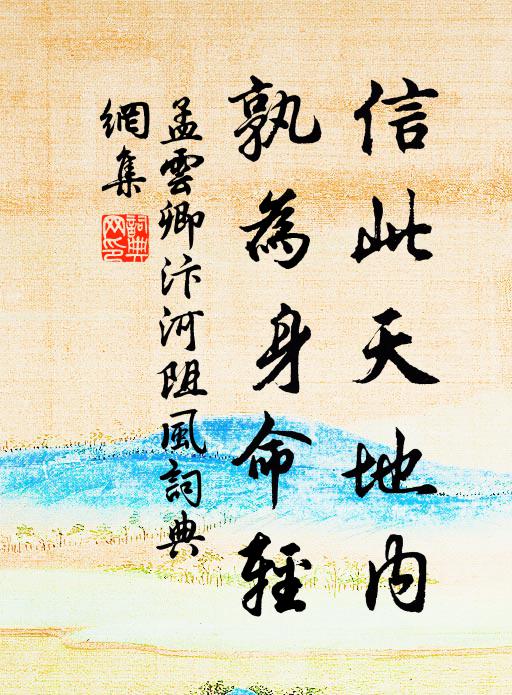 信此天地內
孰為身命輕
孟雲卿汴河阻風詞典
網集
詞典
网印